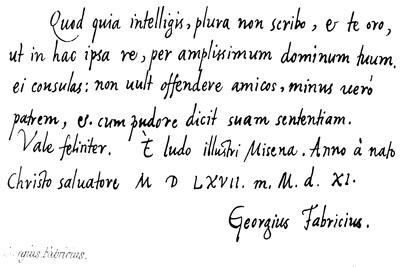 Quod quia intelligis, plura non scribo, & te oro,
ut in hac ipsa re, per amplissimum dominum tuum.
ei consulas: non uult offendere amicos, minus uerò
patrem, es. cum pudore dicit suam sententiam.
Vale feliciter. È ludo illustri Misena. Anno à nato
Christo saluatore M D LXVII. m. M. d. XI.
Georgius Fabricius.
Fabricius.